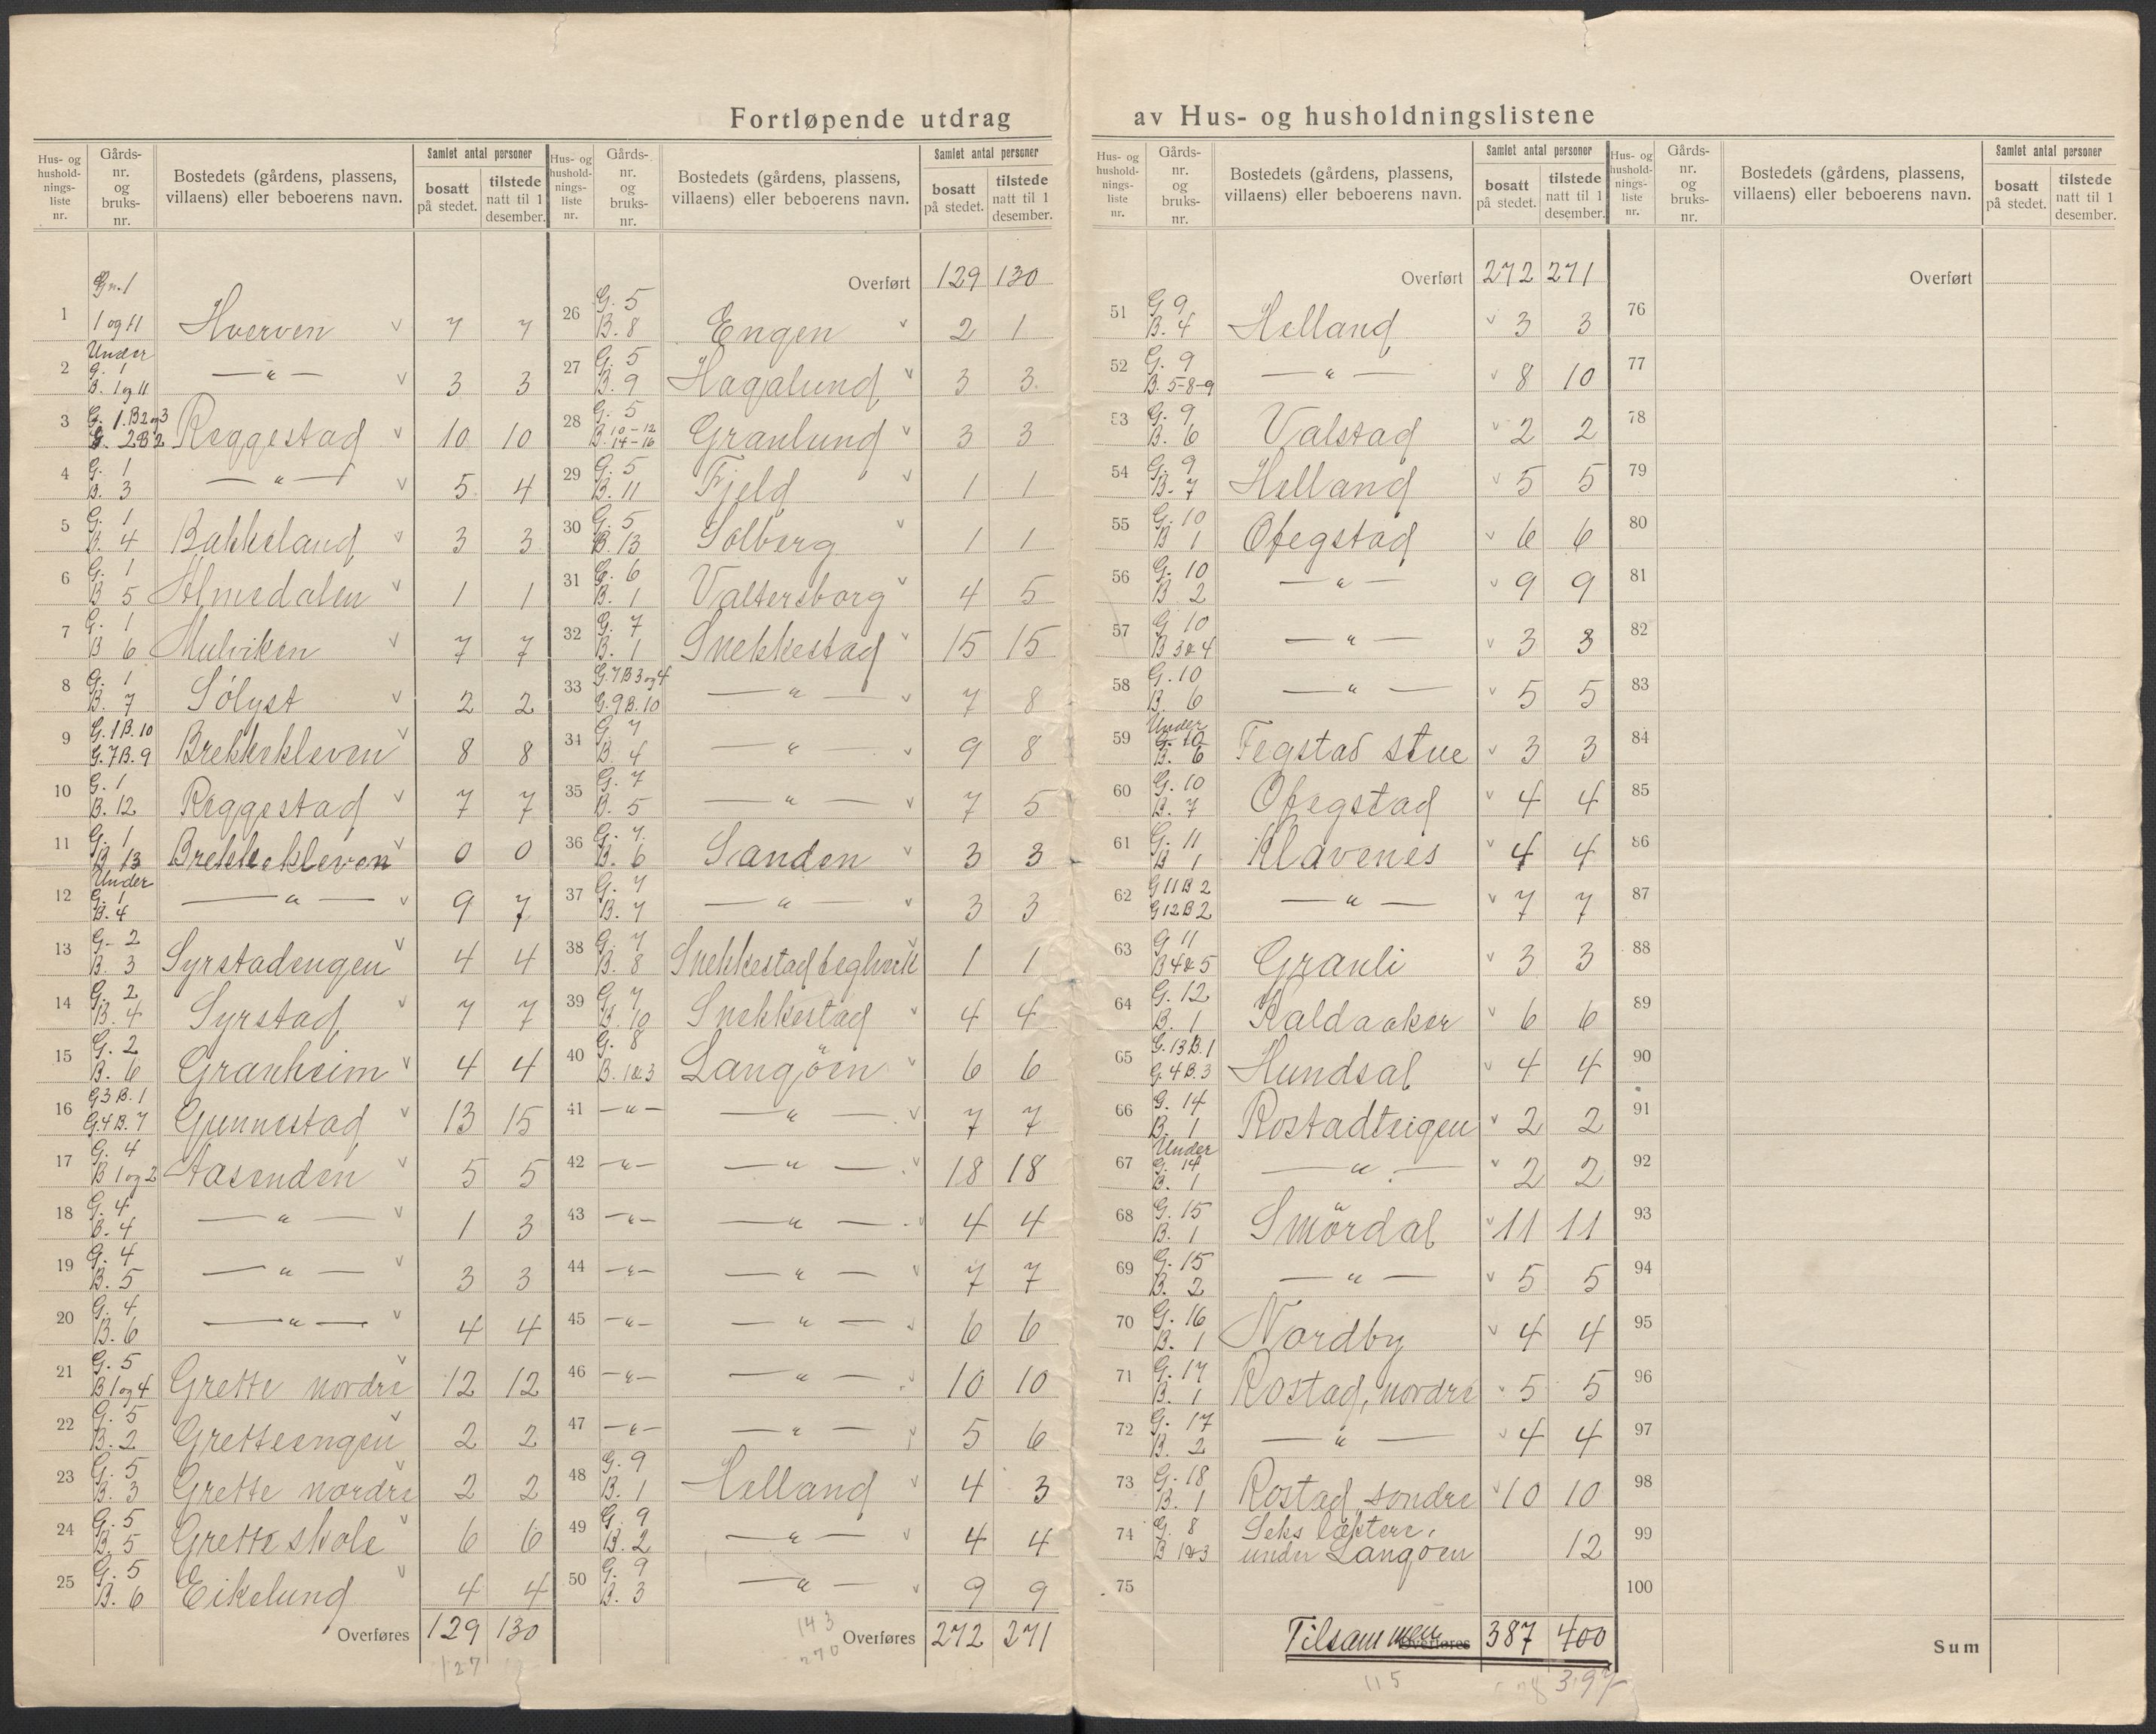 Fortløpende utdrag av Hus- og husholdningslistene
Hus- og husholdnings-liste nr. | Gårds-nr. og bruks-nr. | Bostedets (gårdens, plassens, villaens) eller beboerens navn. | Samlet antal personer bosatt på stedet. | tilstede natt til 1 desember.
1 Gn. 1 1 og 11 Hverven v 7 7
2 Under G. 1 B. 1 og 11 — " — v 3 3
3 G. 1. B2 og 3 G. 2 B 2 Reggestad v 10 10
4 G. 1 B. 3 — " — v 5 4
5 G. 1 B. 4 Bakkeland v 3 3
6 G. 1 B 5 Almedalen v 1 1
7 G. 1 B 6 Mulviken v 7 7
8 G. 1 B. 7 Sölyst v 2 2
9 G. 1 B. 10 G. 7 B. 9 Brekkekleven v 8 8
10 G. 1 B. 12 Reggestad v 7 7
11 G. 1 B 13 Brekkekleven v 0 0
12 Under G. 1 B. 4 — " — v 9 7
13 G- 2 B. 3 Syrstadengen v 4 4
14 G. 2 B. 4 Syrstad v 7 7
15 G. 2 B. 6 Granheim v 4 4
16 G3 B. 1 G. 4 B. 7 Gunnestad v 13 15
17 G. 4 B 1 og 2 Aasenden v 5 5
18 G. 4 B. 4 — " — v 1 3
19 G. 4 B. 5 — " — v 3 3
20 G. 4 B. 6 — " — v 4 4
21 G. 5 B 1 og 4 Grette nordre v 12 12
22 G. 5 B. 2 Gretteengen v 2 2
23 G. 5 B. 3 Grette nordre v 2 2
24 G. 5 B. 5 Grette skole v 6 6
25 G. 5 B. 6 Eikelund v 4 4
Overføres 129 130
127
Hus- og husholdnings-liste nr. | Gårds-nr. og bruks-nr. | Bostedets (gårdens, plassens, villaens) eller beboerens navn. | Samlet antal personer bosatt på stedet. | tilstede natt til 1 desember.
Overført 129 130
26 G. 5 B. 8 Engen v 2 1
27 G. 5 B. 9 Hagalund v 3 3
28 G. 5 B. 10-12 14-16 Granlund v 3 3
29 G. 5 B. 11 Fjeld v 1 1
30 G. 5 B. 13 Solberg v 1 1
31 G. 6 B. 1 Valtersborg v 4 5
32 G. 7 B. 1 Snekkestad v 15 15
33 G. 7 B 3 og 4 G. 9 B. 10 — " — v 7 8
34 G. 7 B. 4 — " — v 9 8
35 G. 7 B. 5 — " — v 7 5
36 G. 7. B. 6 Sanden v 3 3
37 G. 7 B. 7 — " — v 3 3
38 G. 7 B. 8 Snekkestad teglverk v 1 1
39 G. 7 B. 10 Snekkestad v 4 4
40 G. 8 B. 1&3 Langöen v 6 6
41 — " — — " — v 7 7
42 — " — — " — v 18 18
43 — " — — " — v 4 4
44 — " — — " — v 7 7
45 — " — — " — v 6 6
46 — " — — " — v 10 10
47 — " — — " — v 5 6
48 G. 9 B. 1 Helland v 4 3
49 G. 9 B. 2 — " — v 4 4
50 G. 9 B. 3 — " — v 9 9
143 Overføres 272 271
270
Hus- og husholdnings-liste nr. | Gårds-nr. og bruks-nr. | Bostedets (gårdens, plassens, villaens) eller beboerens navn. | Samlet antal personer bosatt på stedet. | tilstede natt til 1 desember.
Overført 272 271
51 G 9 B. 4 Helland v 3 3
52 G. 9 B. 5-8-9 — " — v 8 10
53 G. 9 B. 6 Valstad v 2 2
54 G. 9 B. 7 Helland v 5 5
55 G. 10 B 1 Ofegstad v 6 6
56 G. 10 B 2 — " — v 9 9
57 G 10 B 3&4 — " — v 3 3
58 G. 10 B. 6 — " — v 5 5
59 Under G. 10 B. 6 Fegstad stue v 3 3
60 G. 10 B. 7 Ofegstad v 4 4
61 G. 11 B 1 Klavenes v 4 4
62 G 11 B 2 G 12 B 2 — " — v 7 7
63 G 11 B 4&5 Granli v 3 3
64 G. 12 B. 1 Kaldaaker v 6 6
65 G. 13 B. 1 G. 4 B. 3 Hundsal v 4 4
66 G. 14 B. 1 Rostadteigen v 2 2
67 Under G. 14 B. 1 — " — v 2 2
68 G. 15 B. 1 Smördal v 11 11
69 G. 15 B. 2 — " — v 5 5
70 G. 16 B. 1 Nordby v 4 4
71 G. 17 B. 1 Rostad, nordre v 5 5
72 G. 17 B. 2 — " — v 4 4
73 G. 18 B. 1 Rostad, sondre v 10 10
74 G. 8 B 1&3 Seks lektere, under Langoen 12
75
Tilsammen Overføres 387 400
115 397
Hus- og husholdnings-liste nr. | Gårds-nr. og bruks-nr. | Bostedets (gårdens, plassens, villaens) eller beboerens navn. | Samlet antal personer bosatt på stedet. | tilstede natt til 1 desember.
Overført
76
77
78
79
80
81
82
83
84
85
86
87
88
89
90
91
92
93
94
95
96
97
98
99
100
Sum